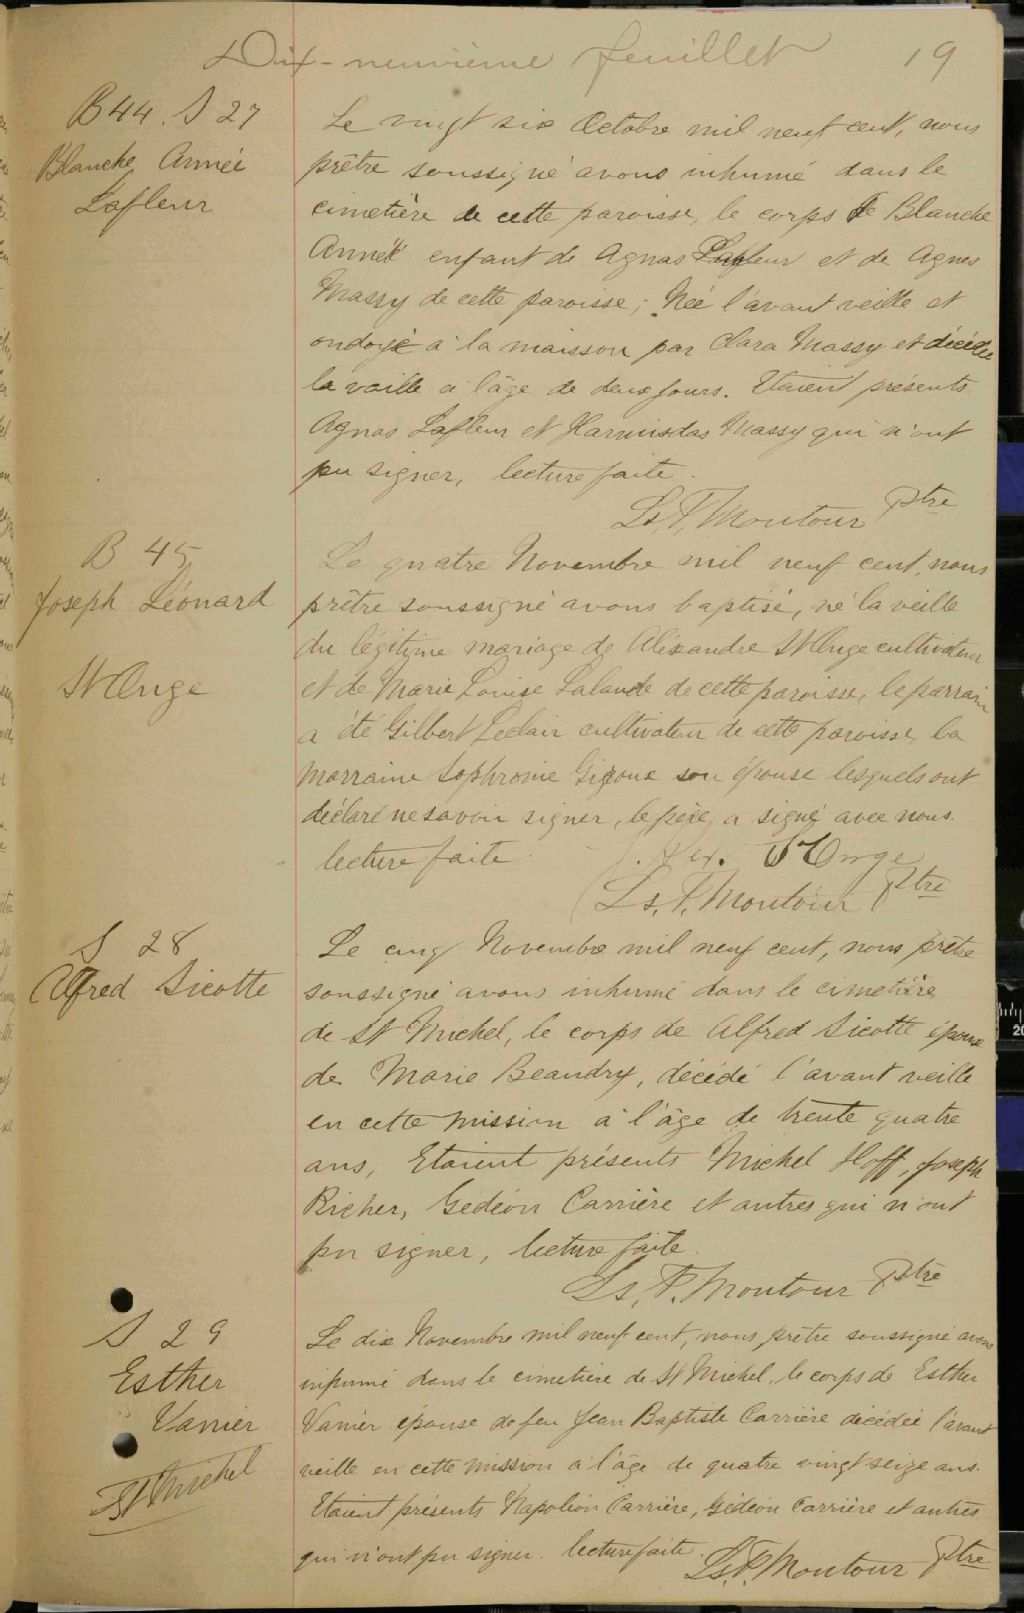 Dix-neuvième feuillet 19
B 44. S 27
Blanche Année
Lafleur
Le vingt six Octobre mil neuf cent, nous
prêtre soussigné avons inhumé dans le
cimetière de cette paroisse, le corps de Blanche
Année enfant de Agnas Lafleur et de Agnes
Massy de cette paroisse; Née l'avant veille et
ondoyé à la maison par Clara Massy et décédée
la vaille a l'âge de deux jours. Etaient présents
Agnas Lafleur et Harmisdas Massy qui n'ont
pu signer, lecture faite.
Ls. P. Montour Ptre
B 45
Joseph Léonard
St Onge
Le quatre Novembre mil neuf cent, nous
prêtre soussigné avons baptisé, né la veille
du légitime mariage de Aléxandre St Onge cultivateur
et de Marie Louise Lalande de cette paroisse, le parrain
a été Gilbert Leclair cultivateur de cette paroisse, la
marraine Sophronie son épouse lesquels ont
déclaré ne savoir signer, le père a signé avec nous.
lecture faite. St Onge
Ls. P. Montour Ptre
S 28
Alfred Sicotte
Le cinq Novembre mil neuf cent, nous prêtre
soussigné avons inhumé dans le cimetière
de St Michel, le corps de Alfred Sicotte époux
de Marie Beaudry, décédé l'avant veille
en cette mission à l'âge de trente quatre
ans, Etaient présents Michel Hoff, Joseph
Richer, Gedéon Carrière et autres qui n'ont
pu signer, lecture faite.
Ls. P. Montour Ptre
S 29
Esther
Vanier
St Michel
Le dix Novembre mil neuf cent, nous prêtre soussigné avons
inhumé dans le cimetière de St Michel, le corps de Esther
Vanier épouse de feu Jean Baptiste Carrière décédée l'avant
veille en cette mission à l'âge de quatre vingt seize ans.
Etaient présents Napoléon Carrière, Gédéon Carrière et autres
qui n'ont pu signer. lecture faite. Ls. P. Montour Ptre